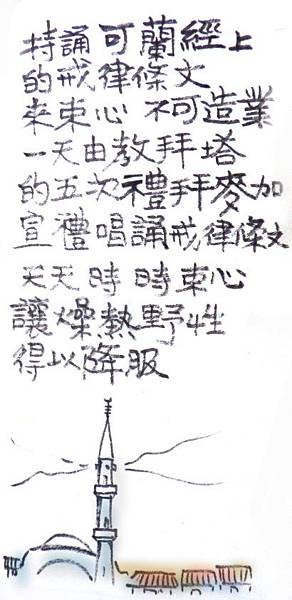 持誦可蘭經上
的戒律條文
來束心 不可造業
一天由教拜塔
的五次禮拜麥加
宣禮唱誦戒律條文
天天時時束心
讓燥熱野性
得以降服